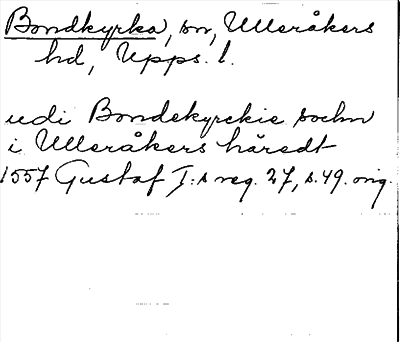 Bondkyrka, sn, Ulleråkers
hd, Upps. l.
udi Bondekyrckie sochn
i Ulleråkers häredt
1557 Gustaf I:s reg. 27, s. 49. orig.